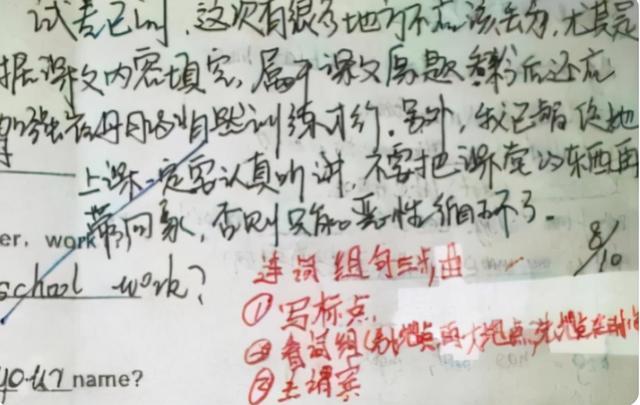 试卷已阅,这次有很多地方不应该丢分,尤其是
据课文内容填空,属于课文原题 后还应
加强 训练才行.另外,我已 她
上课一定要认真听讲 不要把课堂的东西再
带回家,否则只能恶性循环了.
8/10
er, work
school work?
连词组句三步曲
①写标点,
②看词组(先小地点,再大地点,先地点在时间
③主谓宾
your name?